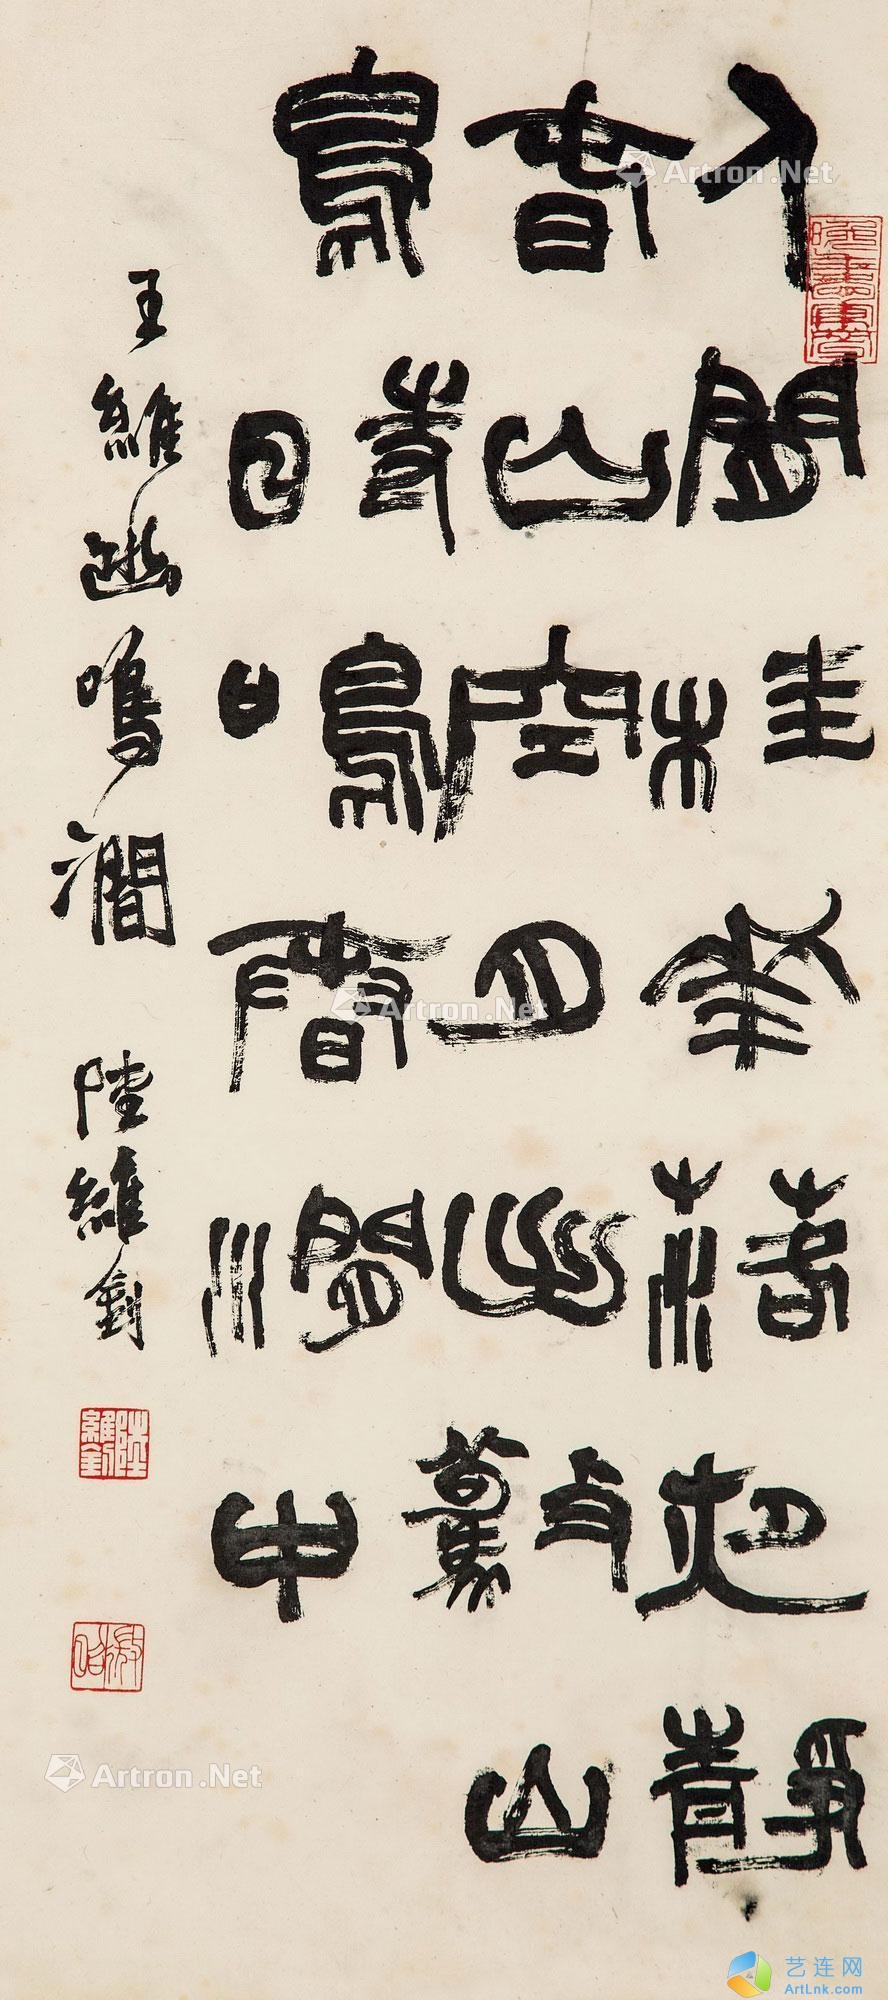 人閒桂花落夜靜
春山空月出驚山
鳥時鳴春澗中
王維幽鳴澗 陸維釗
陸維釗
Artron.Net
Artron.Net
Artron.Net
艺连网
ArtLnk.com